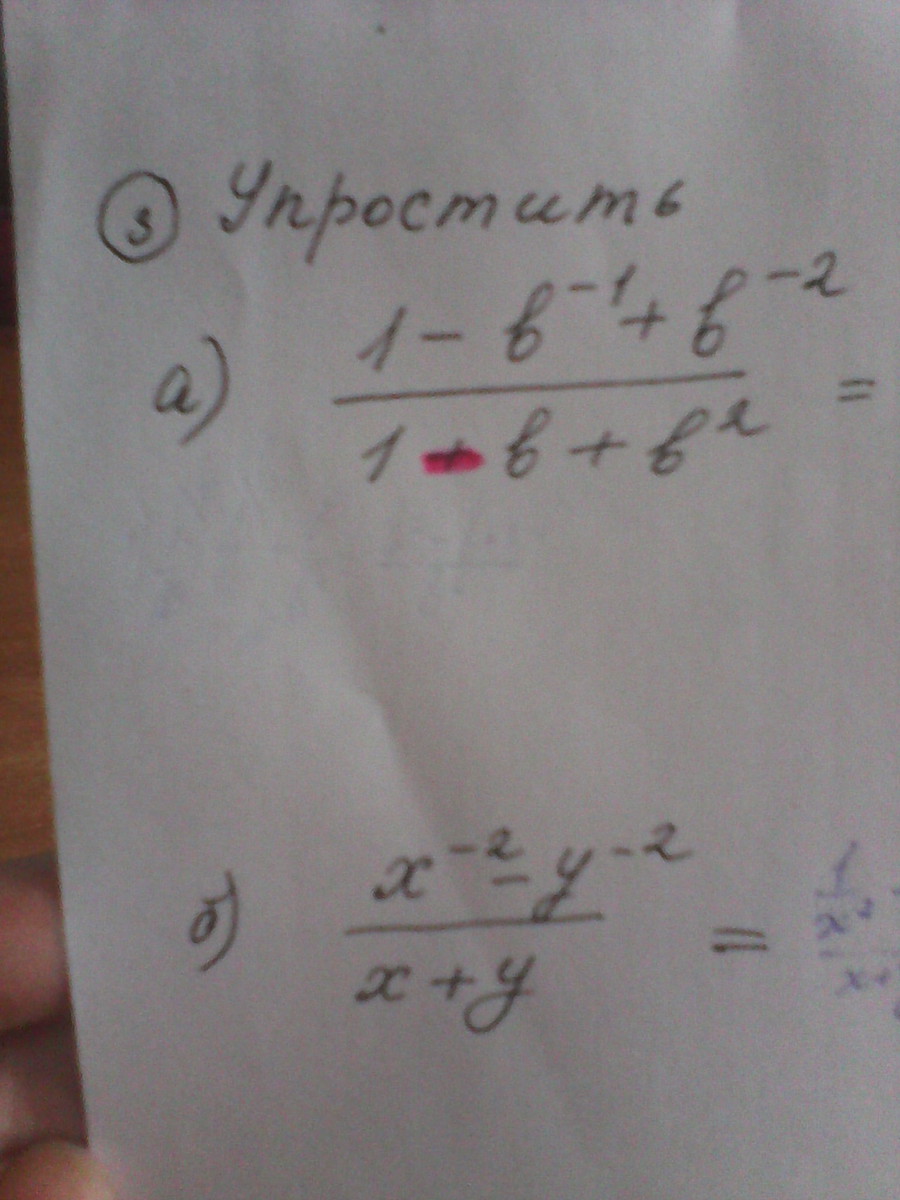 ③ Упростить
а) (1 - в⁻¹ + в⁻²) / (1 + в + в²) =
б) (x⁻² - y⁻²) / (x + y) = (1/x²) / (x+